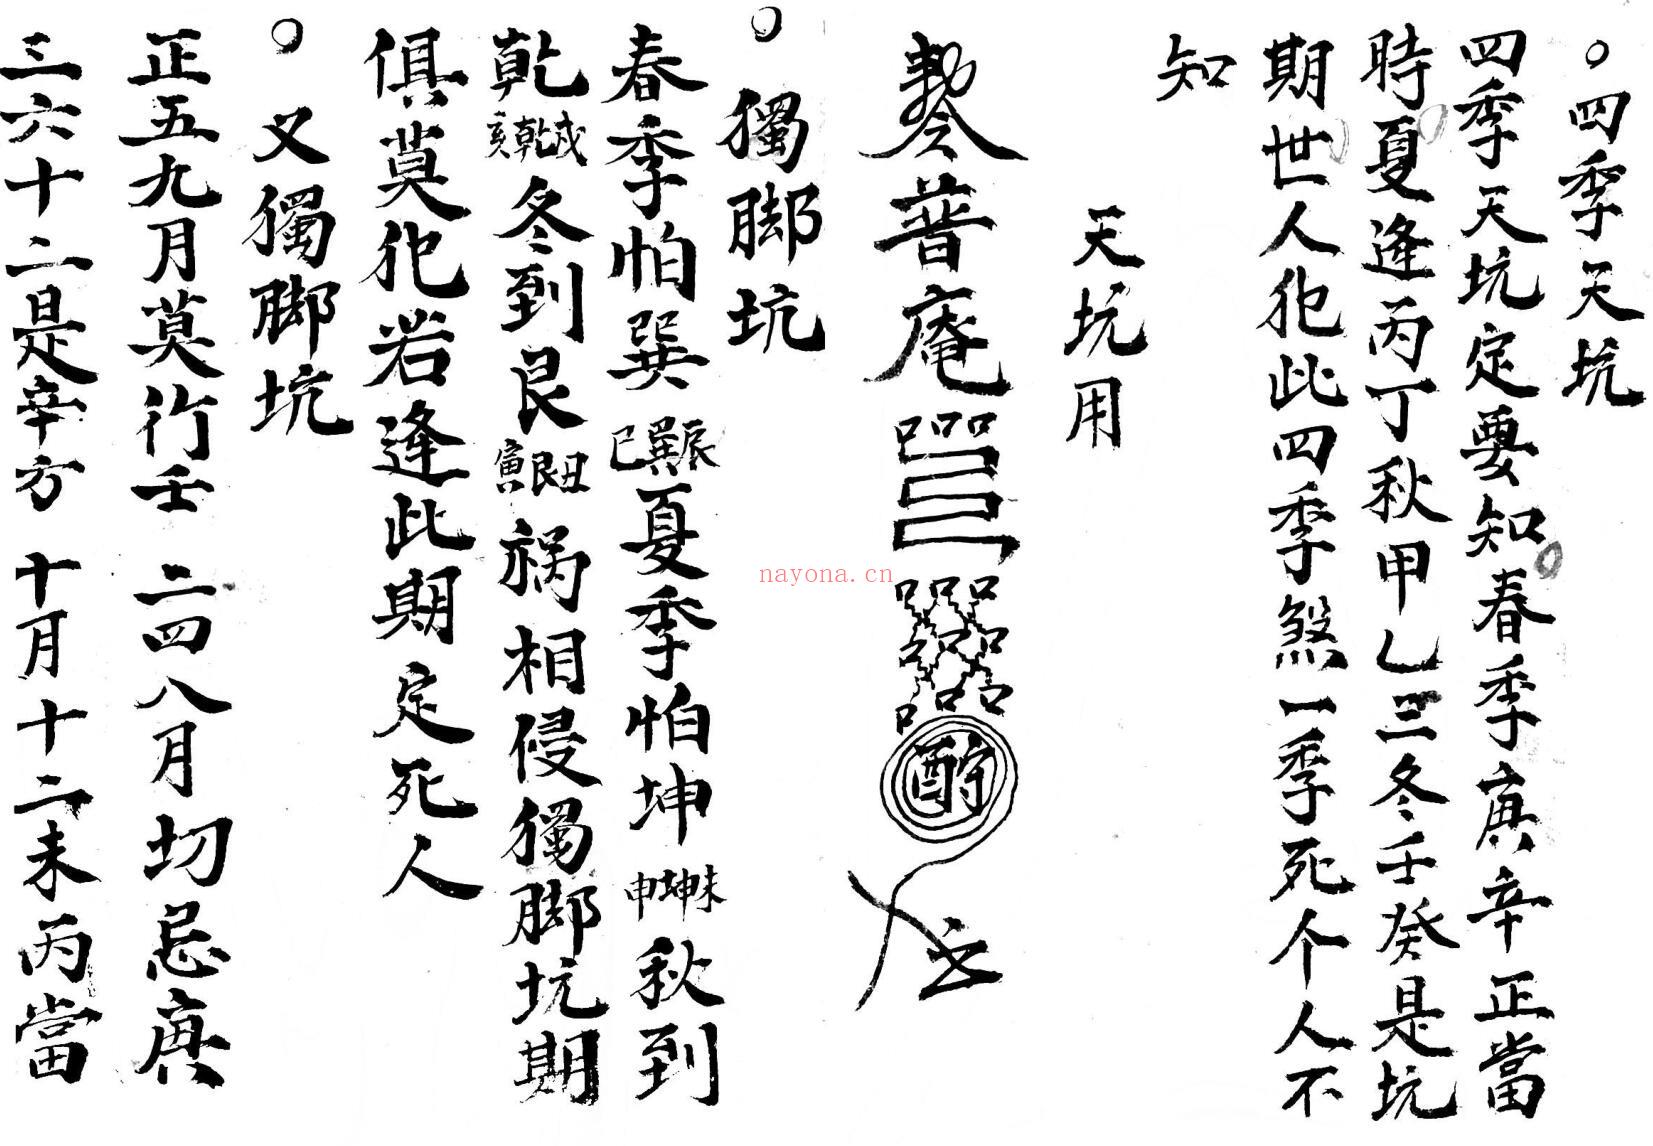 ○四季天坑
四季天坑定要知春季庚辛正當
時夏逢丙丁秋甲乙三冬壬癸是坑
期世人犯此四季煞一季死个人不
知
天坑用
普庵
○獨脚坑
春季怕巽辰巽巳夏季怕坤未坤申秋到
乾戌乾亥冬到艮丑艮寅禍相侵獨脚坑期
俱莫犯若逢此期定死人
○又獨脚坑
正五九月莫行壬 二四八月切忌庚
三六十二是辛方 十月十二未丙當
nayona.cn